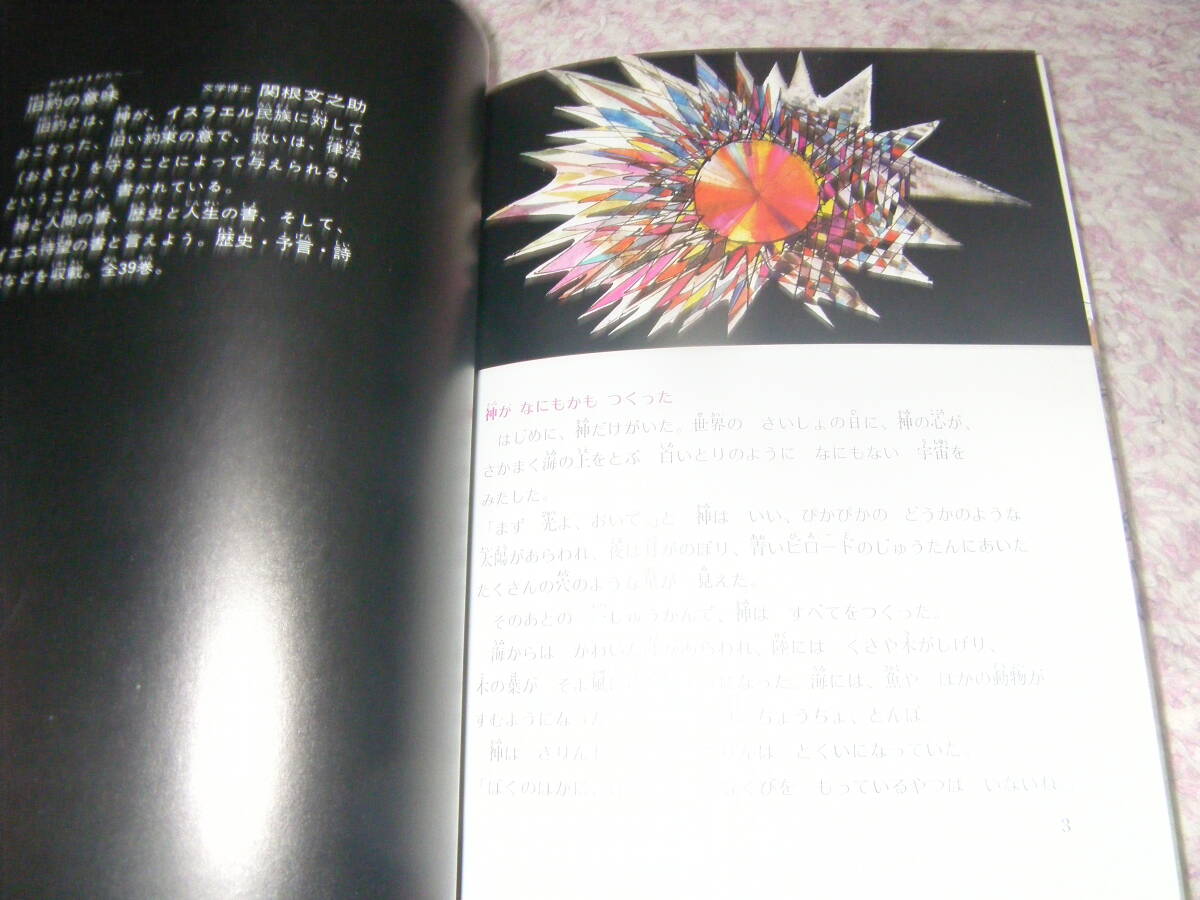 旧約の意味
文学博士 関根文之助
旧約とは、神が、イスラエル民族に対して
おこなった、旧い約束の意で、救いは、律法
(おきて)を守ることによって与えられる、
ということが、書かれている。
神と人間の書、歴史と人生の書、そして、
イエス待望の書と言えよう。歴史・予言・詩
などを収載。全39巻。
神が なにもかも つくった
はじめに、神だけがいた。世界の さいしょの日に、神の心が、
さかまく海の上をとぶ 白いとりのように なにもない 宇宙を
みたした。
「まず 光よ、おいで」と 神は いい、ぴかぴかの どうかのような
太陽があらわれ、夜は月がのぼり、青いビロードのじゅうたんにおいた
たくさんの穴のような星が 見えた。
そのあとの 一しゅうかんで、神は すべてをつくった。
海からは かわいた があらわれ、陸には くさや木がしげり、
木の葉が そよ風に なった。海には、魚や ほかの動物が
すむようになった ちょうちょ、とんぼ
神は きりん りんは とくいになっていた。
「ぼくのほかに、 くびを もっているやつは いないね」
3